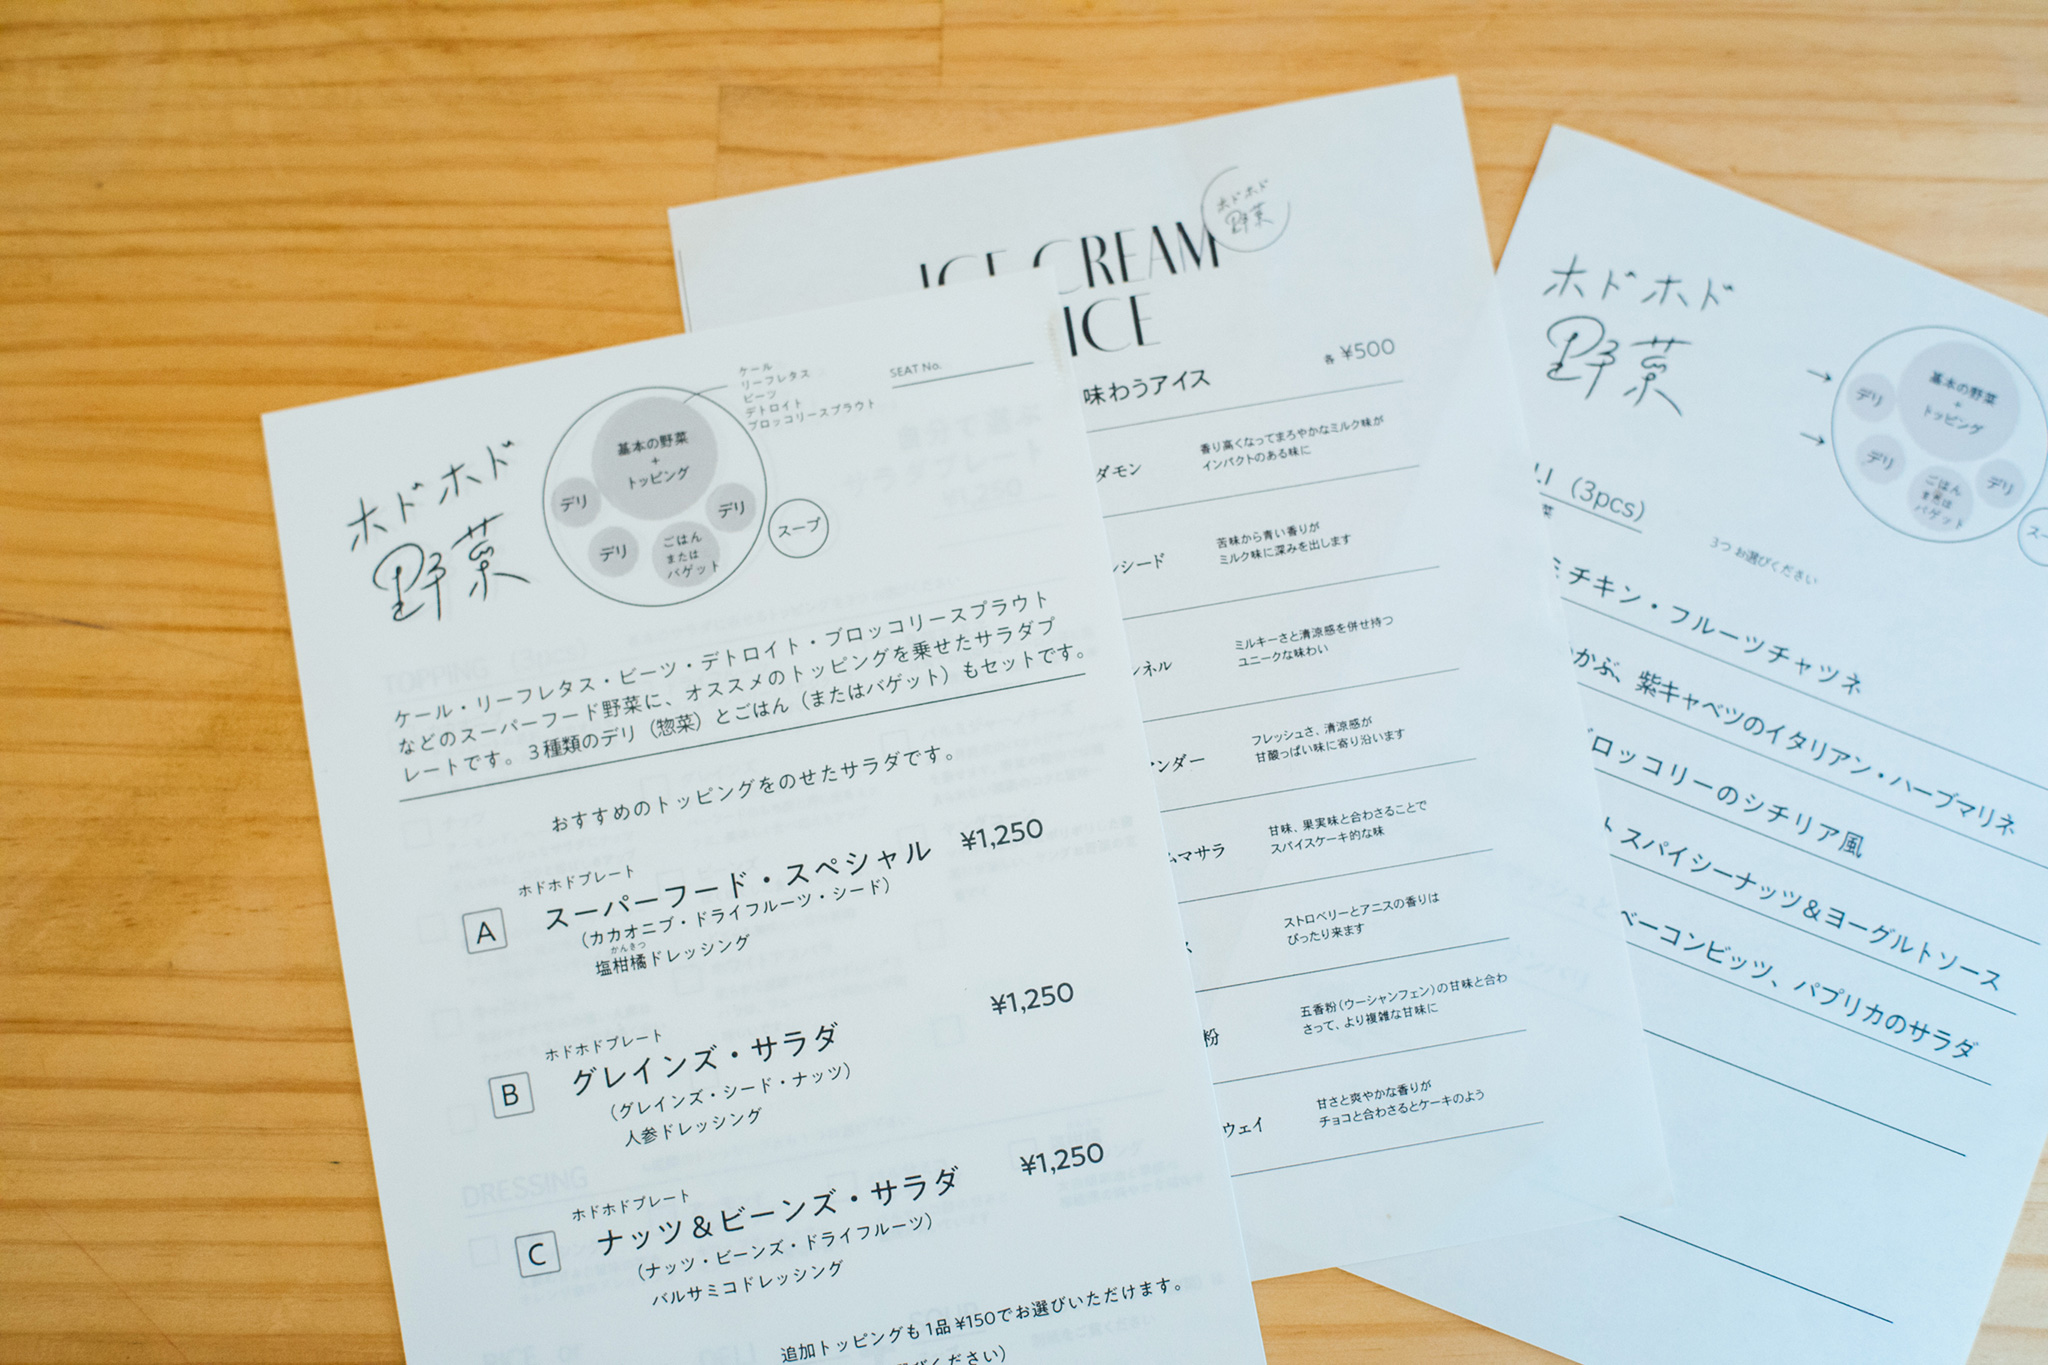 ホドホド
野菜
ケール
リーフレタス
ビーツ
デトロイト
ブロッコリースプラウト
SEAT No.
基本の野菜
+
トッピング
デリ
デリ
デリ
ごはん
または
バゲット
スープ
ケール・リーフレタス・ビーツ・デトロイト・ブロッコリースプラウト
などのスーパーフード野菜に、オススメのトッピングを乗せたサラダプ
レートです。3種類のデリ（惣菜）とごはん（またはバゲット）もセットです。
おすすめのトッピングをのせたサラダです。
ホドホドプレート
A スーパーフード・スペシャル ¥1,250
（カカオニブ・ドライフルーツ・シード）
かんきつ
塩柑橘ドレッシング
ホドホドプレート
B グレインズ・サラダ ¥1,250
（グレインズ・シード・ナッツ）
人参ドレッシング
ホドホドプレート
C ナッツ＆ビーンズ・サラダ ¥1,250
（ナッツ・ビーンズ・ドライフルーツ）
バルサミコドレッシング
追加トッピングも1品¥150でお選びいただけます。
ください）
ホドホド
野菜
ICE CREAM
ICE
味わうアイス
各 ¥500
ダモン
香り高くなってまろやかなミルク味が
インパクトのある味に
シード
苦味から青い香りが
ミルク味に深みを出します
ンネル
ミルキーさと清涼感を併せ持つ
ユニークな味わい
アンダー
フレッシュさ、清涼感が
甘酸っぱい味に寄り沿います
ムマサラ
甘味、果実味と合わさることで
スパイスケーキ的な味
ス
ストロベリーとアニスの香りは
ぴったり来ます
粉
五香粉（ウーシャンフェン）の甘味と合わ
さって、より複雑な甘味に
ウェイ
甘さと爽やかな香りが
チョコと合わさるとケーキのよう
ホドホド
野菜
→
→
基本の野菜
+
トッピング
デリ
デリ
デリ
ごはん
または
バゲット
スー
LI （3pcs）
菜
3つ お選びください
ミチキン・フルーツチャツネ
かぶ、紫キャベツのイタリアン・ハーブマリネ
ブロッコリーのシチリア風
トスパイシーナッツ＆ヨーグルトソース
ベーコンビッツ、パプリカのサラダ